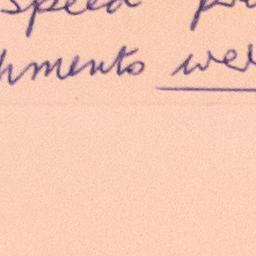 speed
hments wer